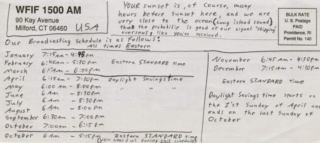 WFIF 1500 AM
90 Kay Avenue
Milford, CT 06460
USA
YOUR sunset is, of course, many
hours before sunset here, and we are
very close to the ocean (Long Island Sound)
that the probability is good of our signal "skipping"
overseas like you received.
BULK RATE
U.S. Postage
PAID
Providence, RI
Permit No.
140
Our Broadcasting Schedule is as Follows:
All times Eastern
January
February 6:45am - 5:30pm EASTERN STANDARD time
March
April 6:15am - 7:30pm Daylight Savings Time
May 6:00am - 8:00pm
June 6am - 8:30pm
July 6am - 8:30pm
August 6am - 8:00pm
September 6:30am - 7:00pm
October 7:00am - 6:15pm
October 6am - 5:15pm Eastern STANDARD time
November 6:45am - 4:30pm
December 7:15am - 4:30pm
EASTERN STANDARD time
Daylight Savings time starts on
the 1st Sunday of April and
ends on the last Sunday of
October